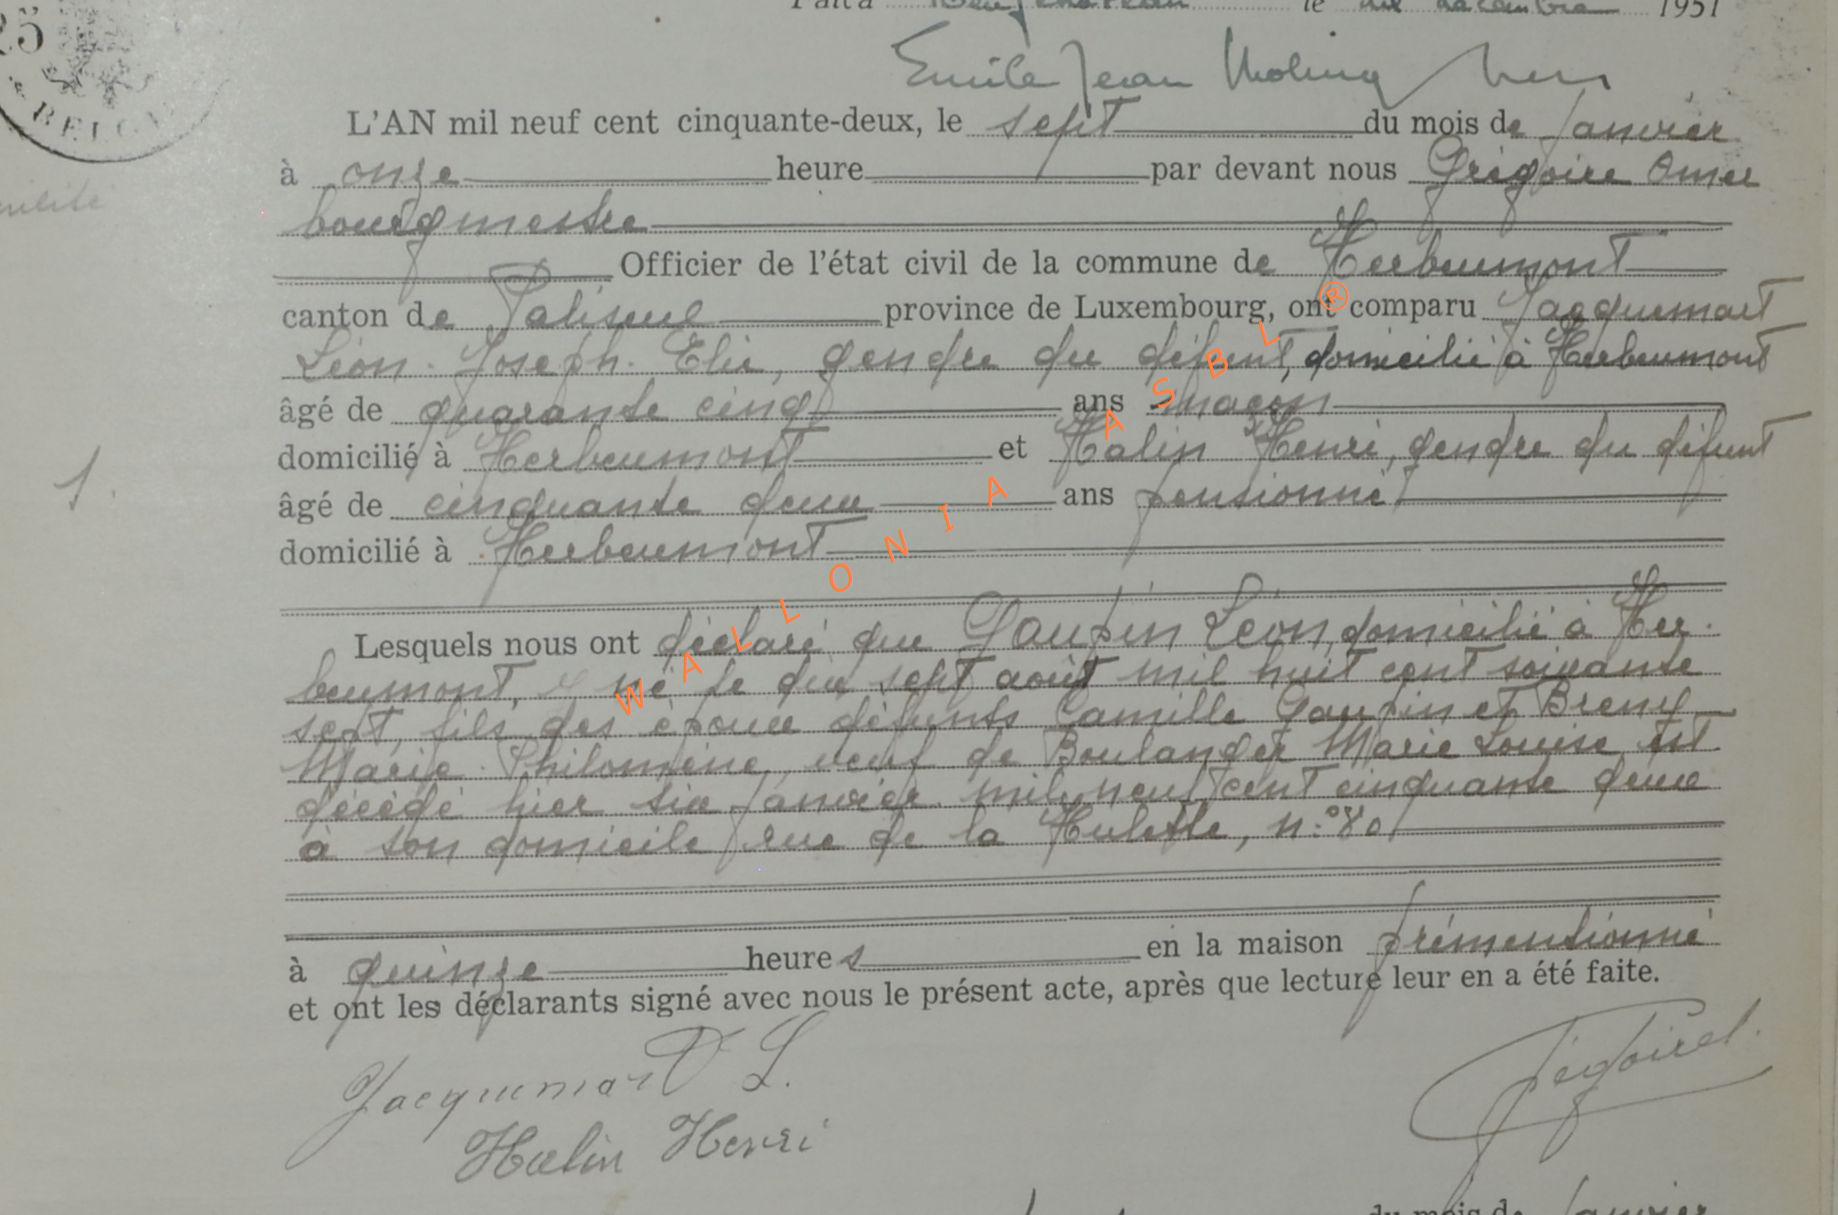 25
BELGI
Fait à Neufchâteau le dix décembre 1951
Emile Jean Molinq
L'AN mil neuf cent cinquante-deux, le sept du mois de Janvier
à onze heure par devant nous Grégoire Omer
bourgmestre
Officier de l'état civil de la commune de Herbeumont
canton de Paliseul province de Luxembourg, ont comparu Jacquemart
Léon Joseph Elie, gendre du défunt, domicilié à Herbeumont
âgé de quarante cinq ans maçon
domicilié à Herbeumont et Halin Henri, gendre du défunt
âgé de cinquante deux ans pensionné
domicilié à Herbeumont
Lesquels nous ont déclaré que Gaupin Léon, domicilié à Her-
beumont, né le dix sept août mil huit cent soixante
sept, fils des époux défunts Camille Gaupin et Breny
Marie Philomène, veuf de Boulanger Marie Louise, est
décédé hier six Janvier mil neuf cent cinquante deux
à son domicile rue de la Hulette, n:° 80
à quinze heures en la maison prémentionné
et ont les déclarants signé avec nous le présent acte, après que lecture leur en a été faite.
Jacquemart L.
Halin Henri
1.
WALLONIA ASBL ®
du mois de Janvier